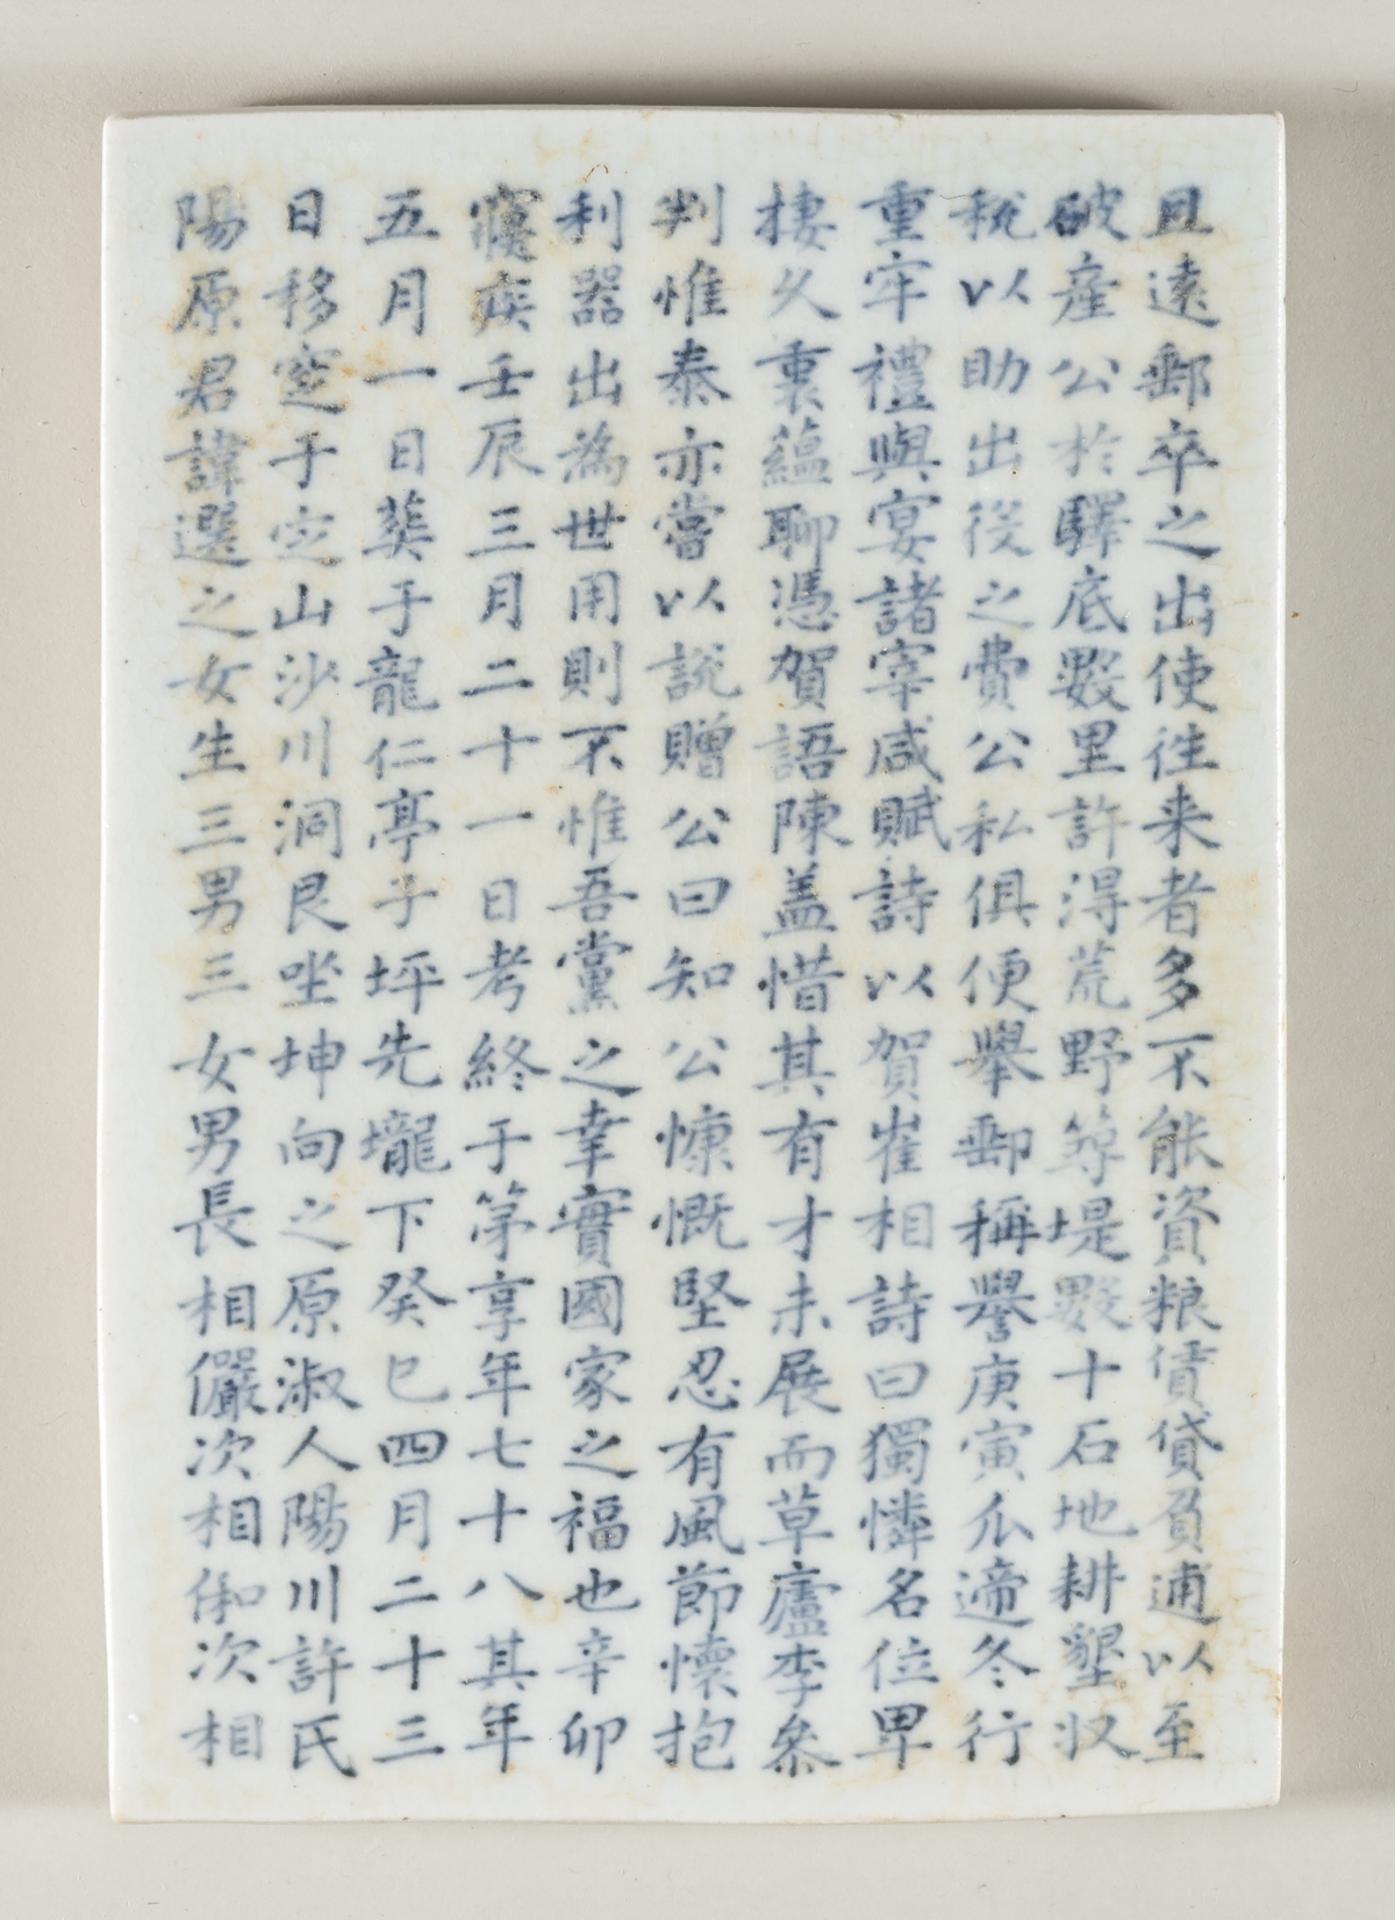 且遠郵卒之出使徃来者多不能資粮賃貸負逋以至
破產公於驛底數里許淂荒野筭堤數十石地耕墾収
稅以助出役之費公私俱便舉郵稱譽庚寅瓜遞冬行
重牢禮與宴諸宰咸賦詩以賀崔相詩曰獨憐名位卑
棲久裏蘊聊憑賀語陳盖惜其有才未展而草廬李叅
判惟泰亦嘗以說贈公曰知公慷慨堅忍有風節懷抱
利器出為世用則不惟吾黨之幸實國家之福也辛卯
寢疾壬辰三月二十一日考終于第享年七十八其年
五月一日葬于龍仁亭子坪先壠下癸巳四月二十三
日移窆于定山沙川洞艮坐坤向之原淑人陽川許氏
陽原君諱選之女生三男三女男長相儼次相傓次相